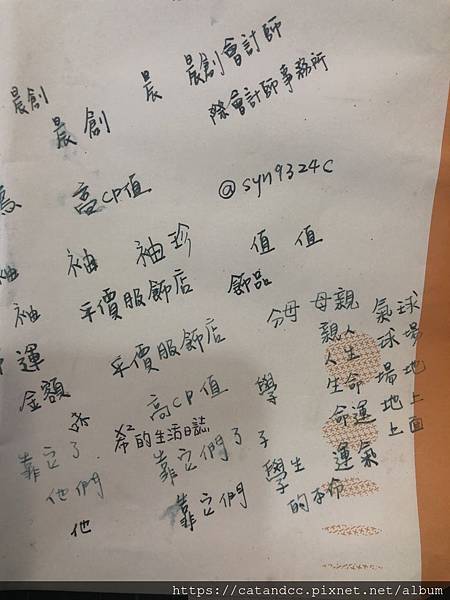 晨創 晨 晨創會計師
晨創 際會計師事務所
高CP值 @syn9324c
袖 袖珍 值 值
袖 平價服飾店 飾品
運 平價服飾店 分母 母親 氣球
金額 高CP值 學 親人 球場
希²的生活日誌 子 人生 場地
靠它了 靠它們了 學生 生命 地上
他們 靠它們 學 命運 上面
他 的本命 運氣
https://catandcc.pixnet.net/album